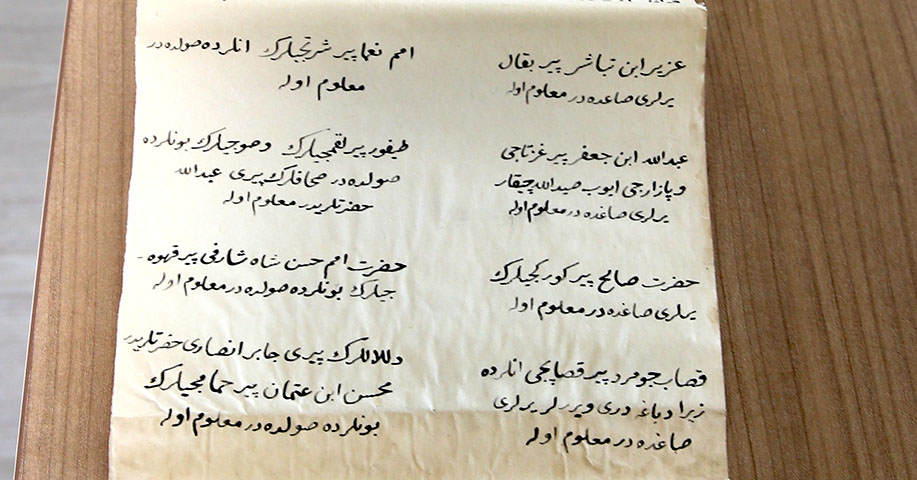 عزیز ابن تباشر پیر بقال
یرلری صاغده در معلوم اوله
عبدالله ابن جعفر پیر غزتاجی
و پازارجی ایوب صیدالله چیقار
یرلری صاغده در معلوم اوله
حضرت صالح پیر کورکجیلرك
یرلری صاغده در معلوم اوله
قصاب جومرد پیر قصابجی انلرده
زیرا دباغه دری ویررلر یرلری
صاغده در معلوم اوله
امم نعما پیر شربتجیلرك انلرده صولده در
معلوم اوله
طیفور پیر لقمجیلرك وصوجیلرك بونلرده
صولده در صحافلرك پیری عبدالله
حضرتلریدر معلوم اوله
حضرت امم حسن شاه شارفی پیر قهوه
جیلرك بونلرده صولده در معلوم اوله
دلاللرك پیری جابر انصاری حضرتلریدر
محسن ابن عثمان پیر حمامجیلرك
بونلرده صولده در معلوم اوله